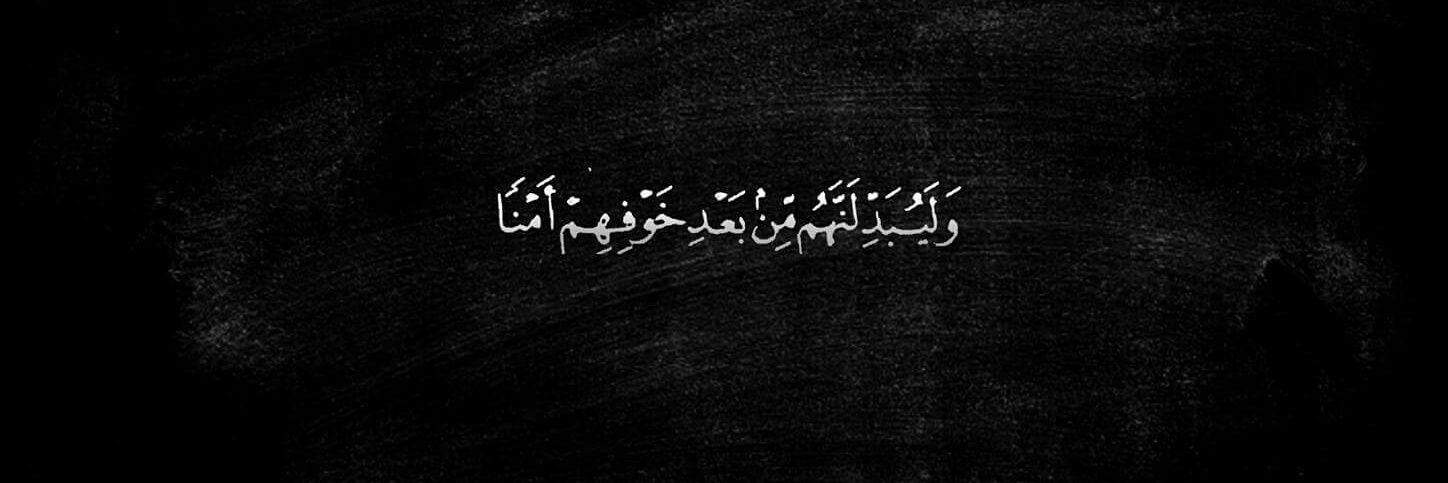 وَلَيُبَدِّلَنَّهُم مِّنۢ بَعۡدِ خَوۡفِهِمۡ أَمۡنٗا